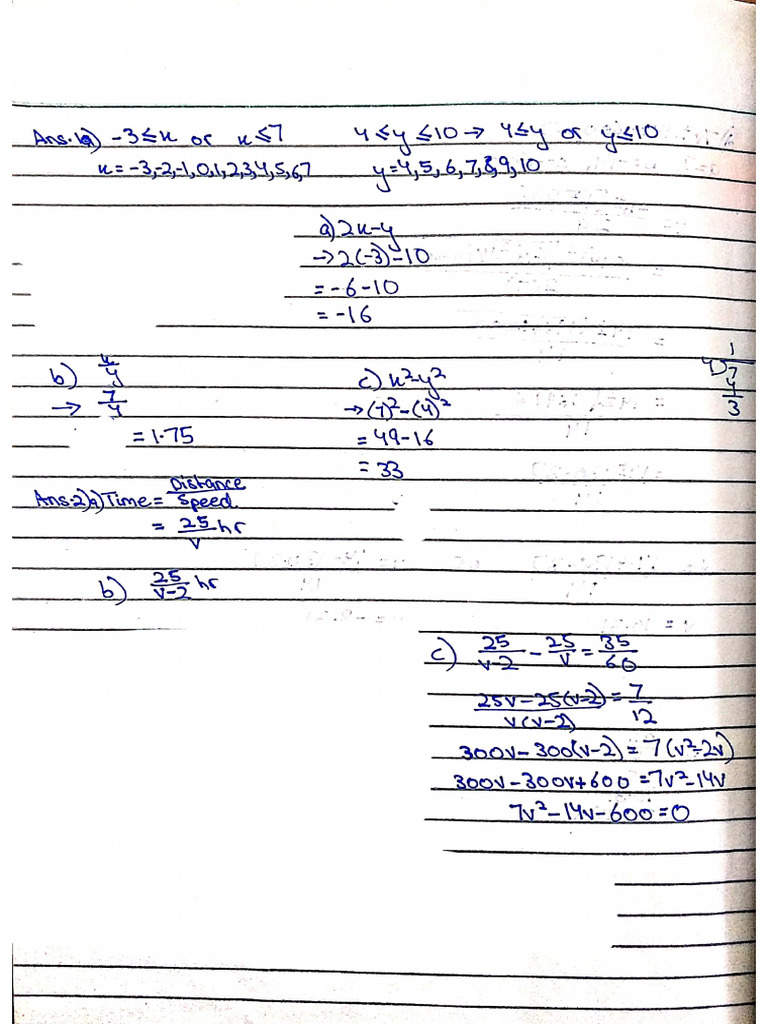 Ans.1a) -3≤x or x≤7 4≤y≤10→ 4≤y or y≤10
x=-3,-2,-1,0,1,2,3,4,5,6,7 y=4,5,6,7,8,9,10
a) 2x-y
→ 2(-3)-10
= -6-10
= -16
b) x/y
→ 7/4
= 1.75
c) x²-y²
→ (7)²-(4)²
= 49-16
= 33
1
4)7
4
3
Ans.2)a) Time = Distance/Speed
= 25/v hr
b) 25/v-2 hr
c) 25/v-2 - 25/v = 35/60
25v-25(v-2)/v(v-2) = 7/12
300v-300(v-2) = 7(v²-2v)
300v-300v+600 = 7v²-14v
7v²-14v-600=0